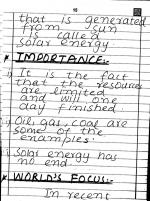 15
that is generated
from sun
is called
solar energy
* IMPORTANCE:-
i) It is the fact
that the resources
are limited
and will one
day finished
ii) Oil, gas, coal are
some of the
examples.
iii) Solar energy has
no end.
* WORLD'S FOCUS:-
In recent